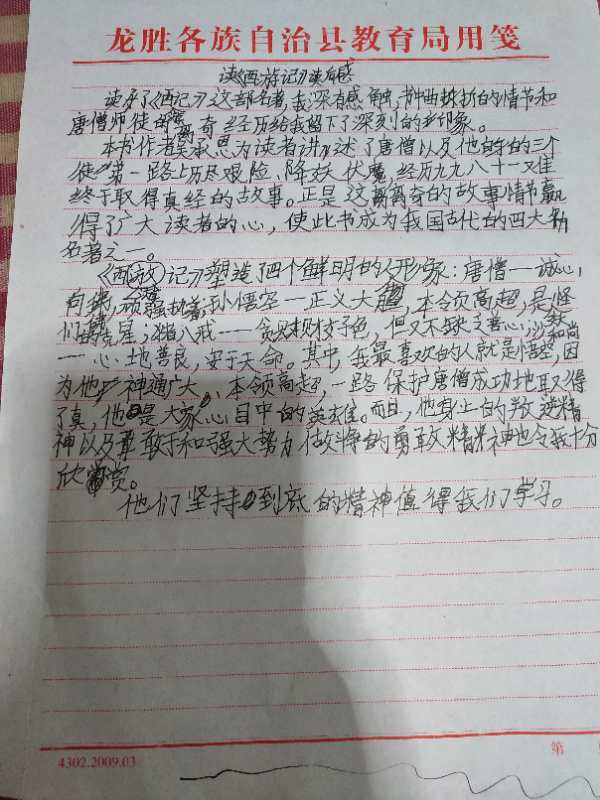 龙胜各族自治县教育局用笺
读《西游记》读有感
读了《西记》这部名著,我深有感触,艸曲挫折的情节和
唐僧师徒的离奇经历给我留下了深刻的印象。
本书作者吴承恩为读者讲述了唐僧以及他的三个
徒弟一路上历尽艰险、降妖伏魔,经历九九八十一难
终于取得真经的故事。正是这离离奇的故事情节赢
得了广大读者的心,使此书成为我国古代的四大
名著之一。
《西游记》塑造了四个鲜明的人形象:唐僧一诚心
向佛,顽强执着;孙悟空一正义大胆,本领高超,是妖怪
们的克星;猪八戒一一贪财好色,但又不缺乏善心;沙和尚
一心地善良,安于天命。其中,我最喜欢的人就是悟空,因
为他神通广大、本领高超,一路保护唐僧成功地取得
了真,他是大家心目中的英雄。而且,他身上的叛逆精
神以及敢于和强大势力做斗争的勇敢精神也令我十分
欣赏。
他们坚持到底的精神值得我们学习。
4302.2009.03
第